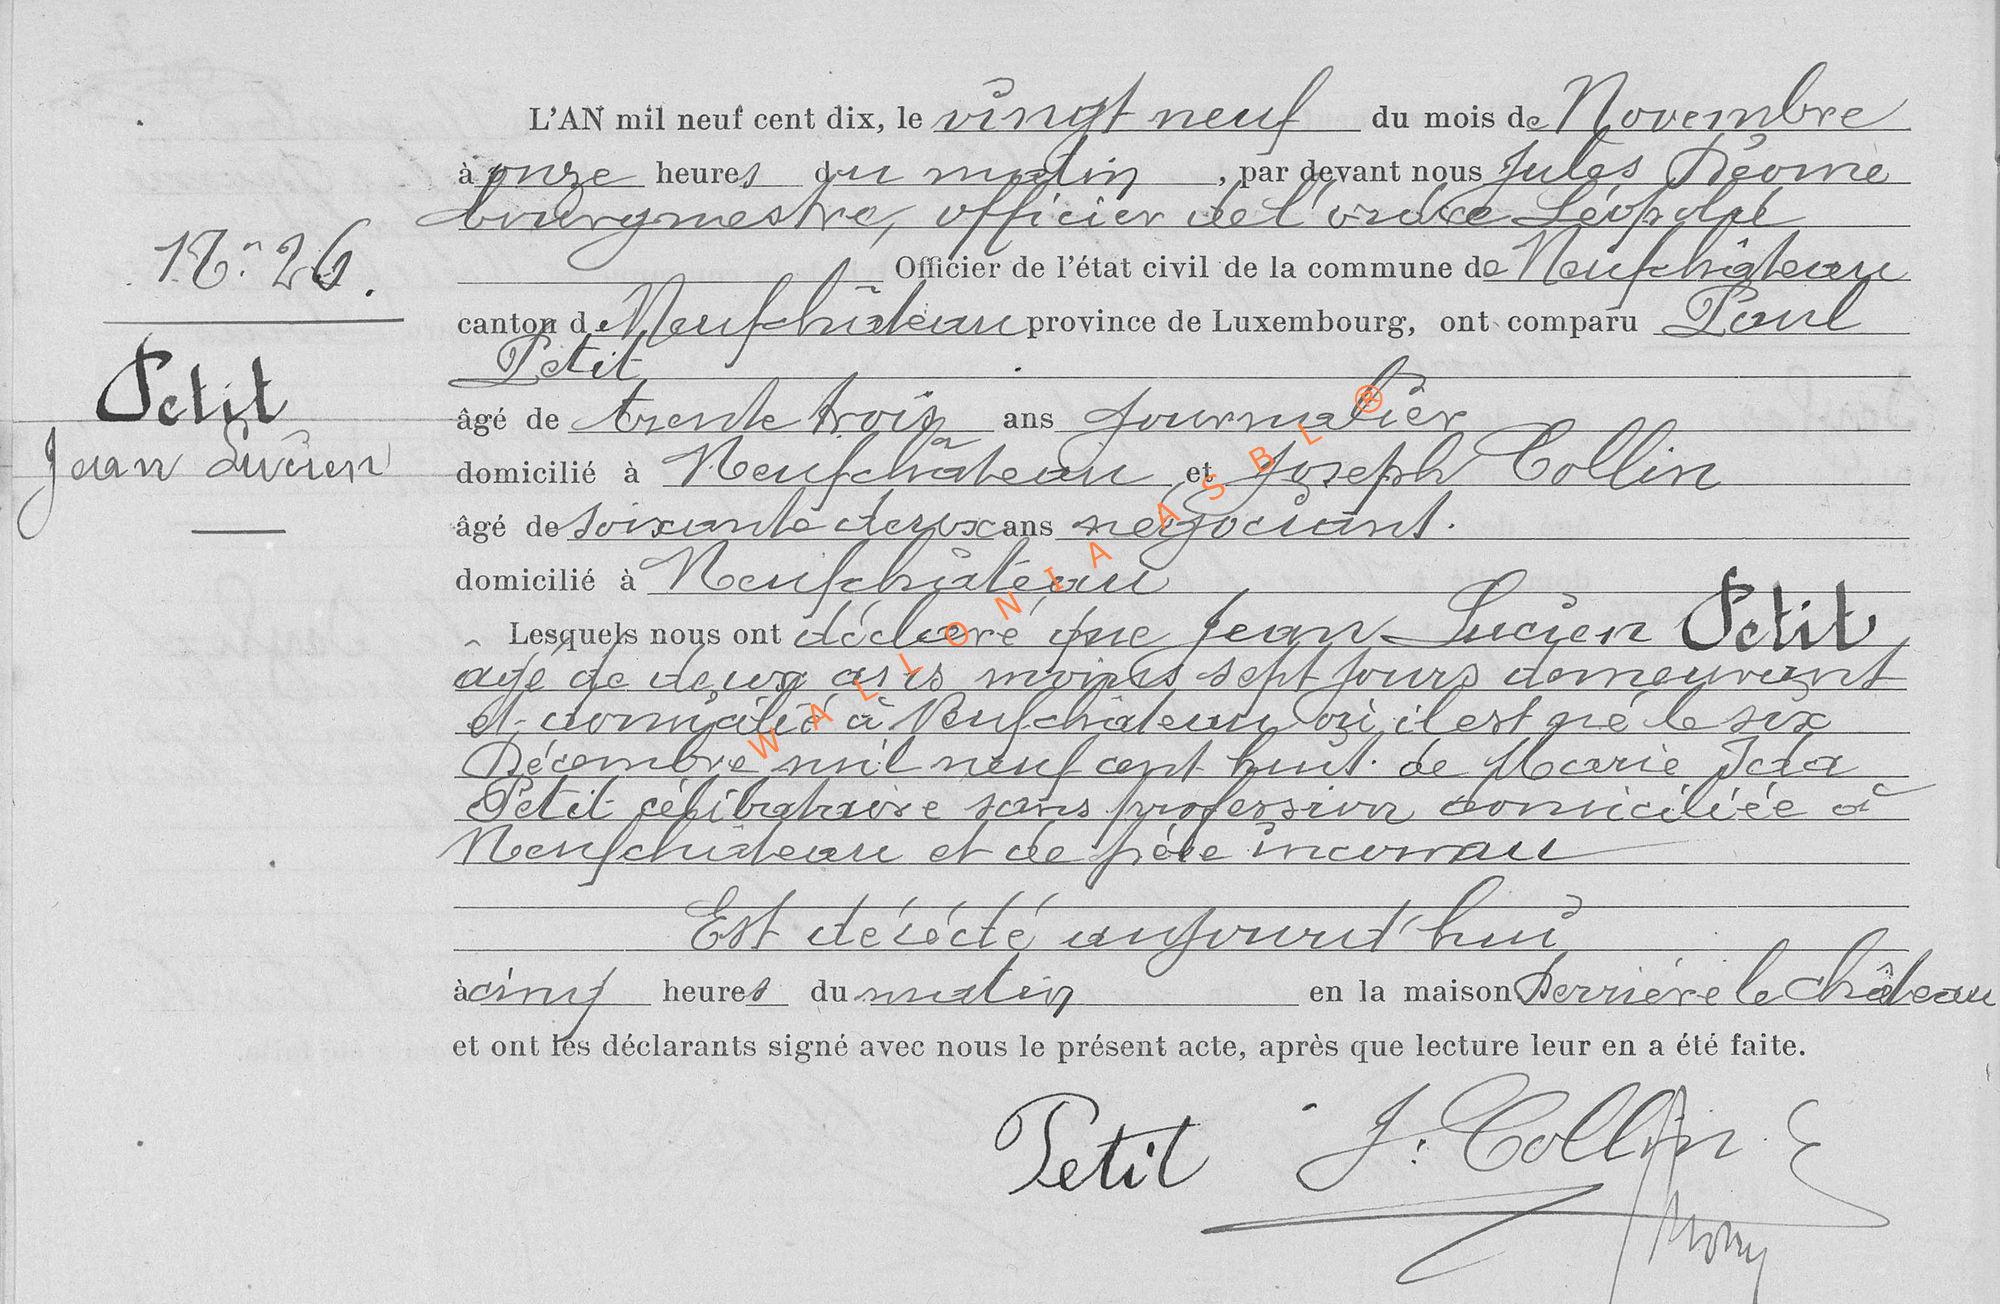 L'AN mil neuf cent dix, le vingt neuf du mois de Novembre
à onze heures du matin, par devant nous Jules Déome
bourgmestre, officier de l'ordre Léopold
N° 26.
Officier de l'état civil de la commune de Neufchâteau
canton de Neufchâteau province de Luxembourg, ont comparu Paul
Petit
Petit
Jean Lucien
âgé de trente trois ans journalier
domicilié à Neufchâteau et Joseph Collin
âgé de soixante deux ans négociant.
domicilié à Neufchâteau
Lesquels nous ont déclaré que Jean Lucien Petit
âgé de deux ans moins sept jours demeurant
et domicilié à Neufchâteau où il est né le six
Décembre mil neuf cent huit de Marie Ida
Petit célibataire sans profession domiciliée à
Neufchâteau et de père inconnu
Est décédé aujourd'hui
à cinq heures du matin en la maison Derrière le Château
et ont les déclarants signé avec nous le présent acte, après que lecture leur en a été faite.
Petit J. Collin
WALLONIA ASBL ®